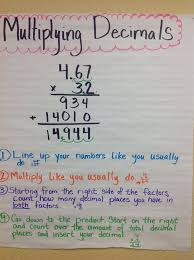 Multiplying Decimals
4.67
x 3.2
934
+ 14010
14.944
1) Line up your numbers like you usually
do
2) Multiply like you usually do.
3) Starting from the right side of the factors,
count how many decimal places you have in
both factors.
4) Go down to the product. Start on the right
and count over the amount of total decimal
places and insert your decimal